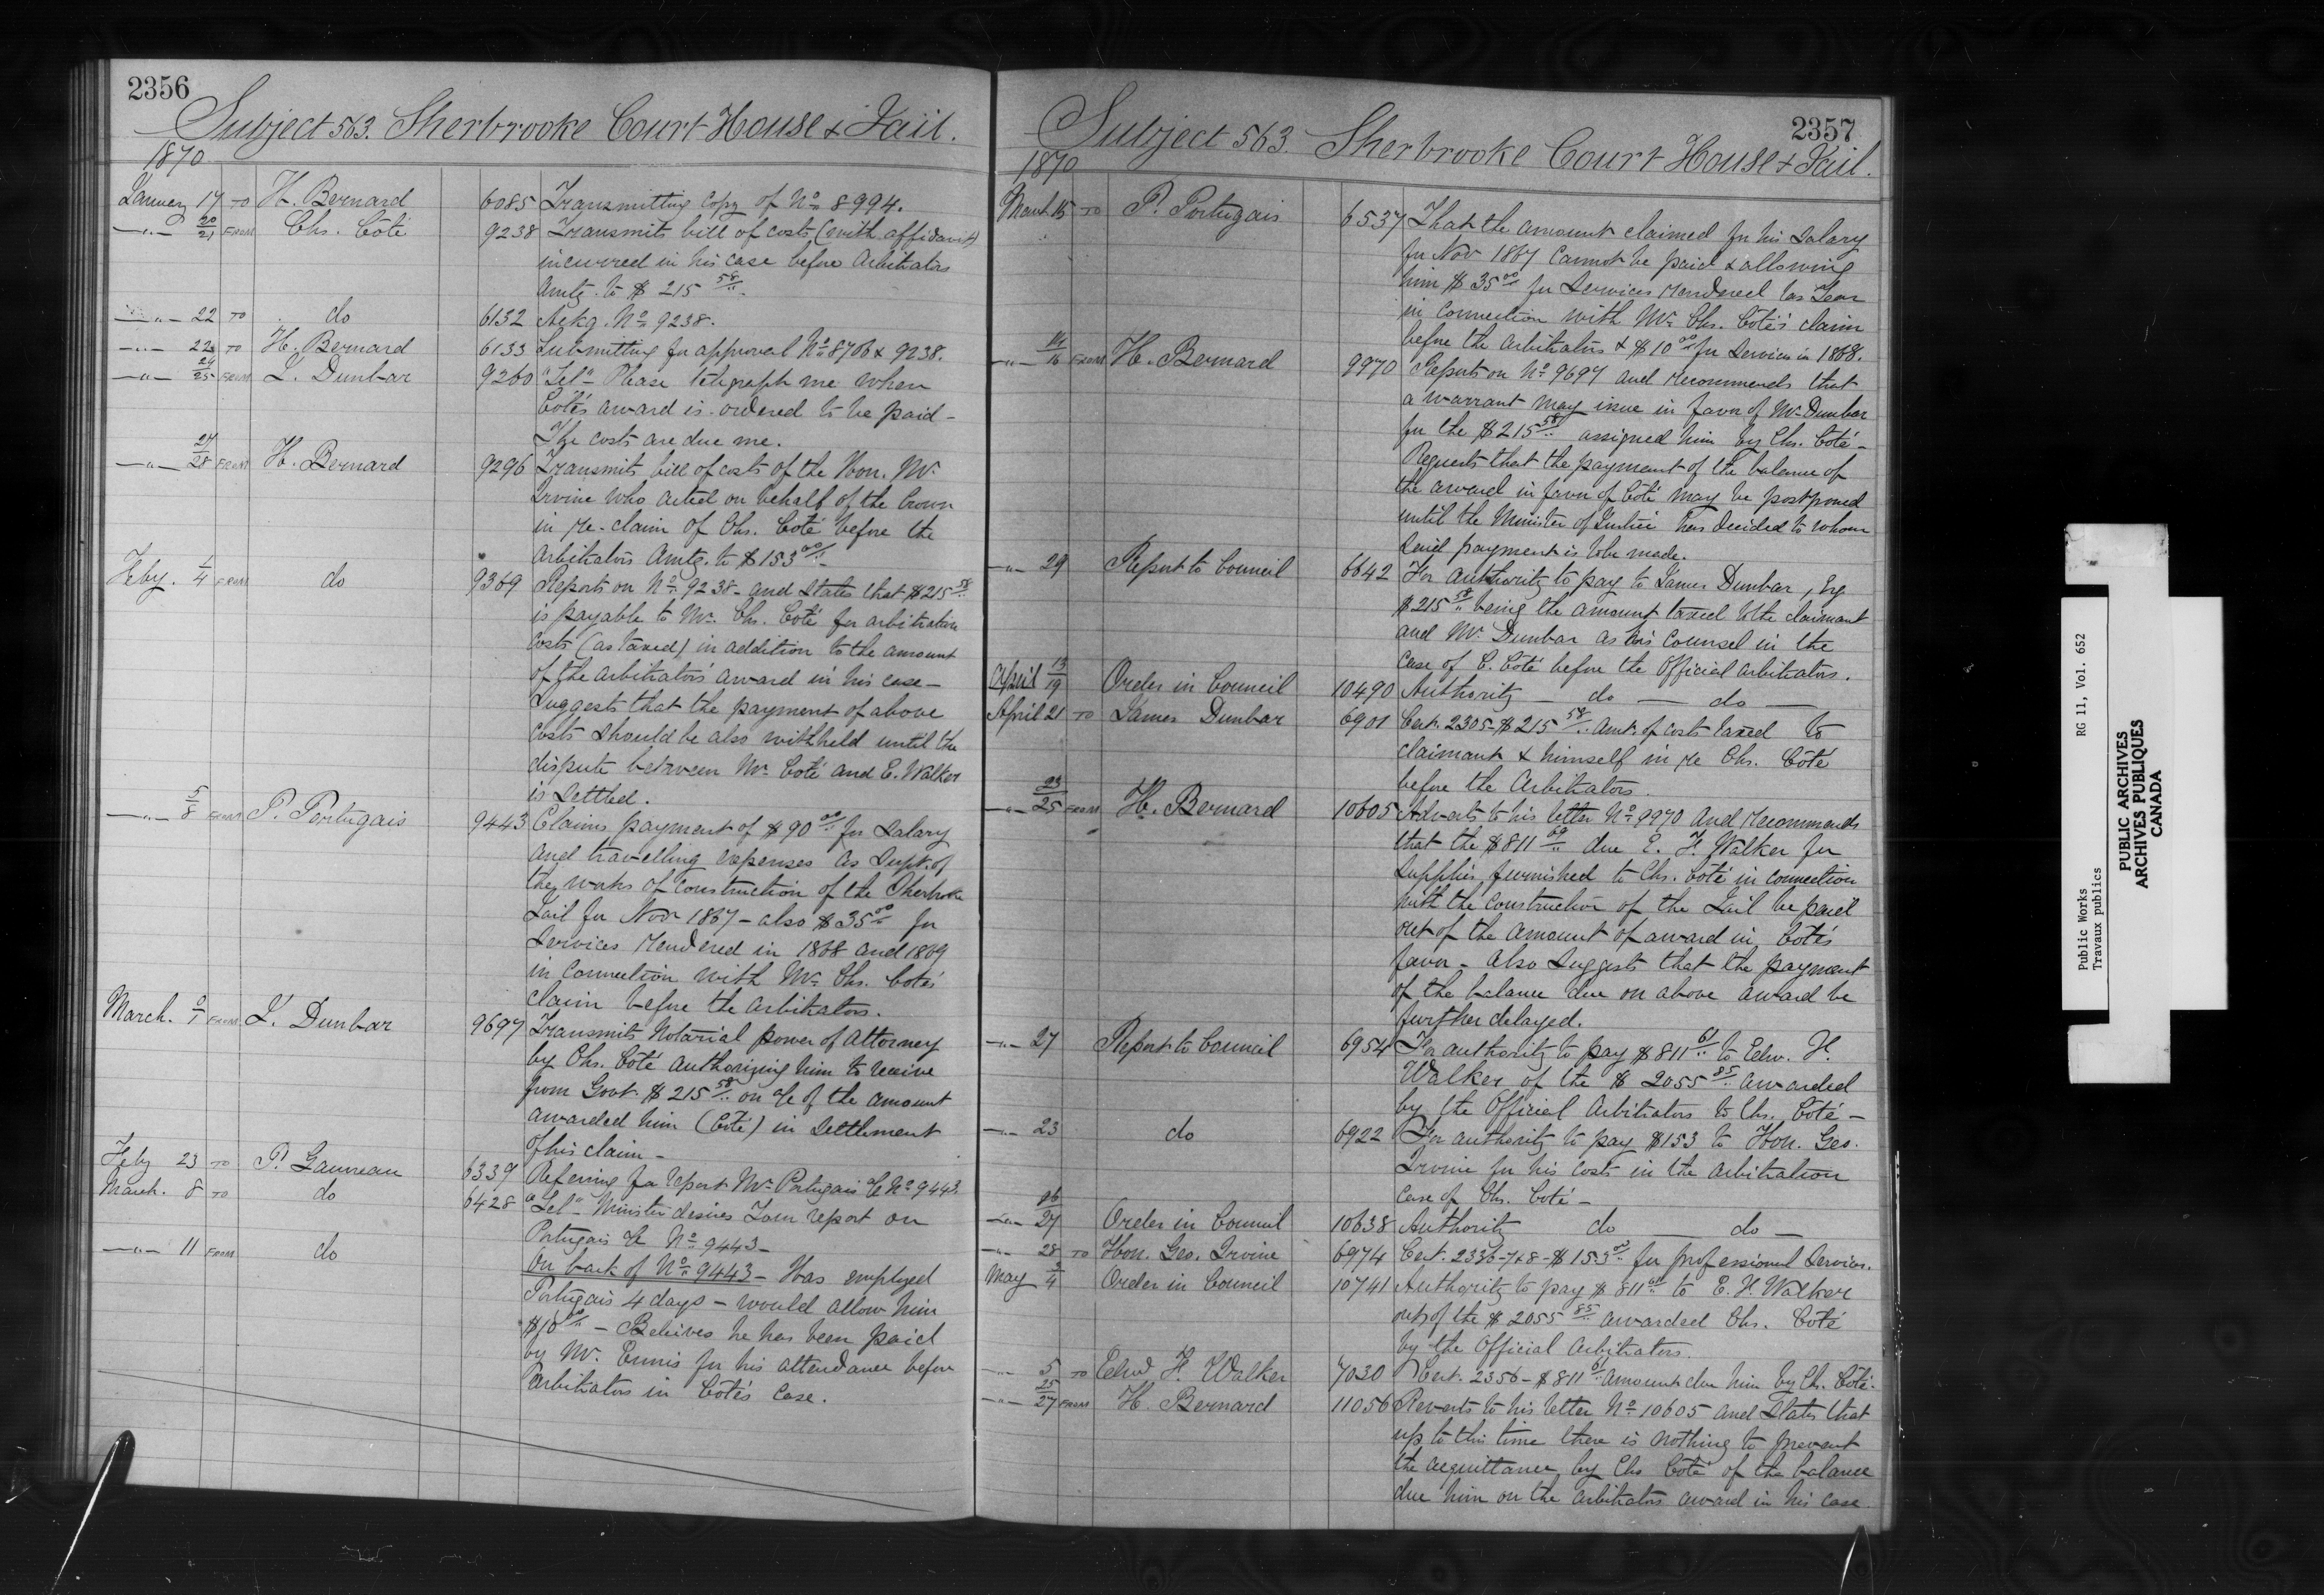 2356
Subject 563. Sherbrooke Court House & Jail.
1870
January 17 TO H. Bernard 6085 Transmitting Copy of No 8994.
—"— 20/21 FROM Chs. Côté 9238 Transmits bill of costs (with affidavit)
incurred in his case before Arbitrators
Amtg. to $215 58/".
—"— 22 TO do 6132 Ackg. No 9238.
—"— 22 TO H. Bernard 6133 Submitting for approval No 8706 & 9238.
—"— 24/25 FROM J. Dunbar 9260 "Tel" Please telegraph me when
Côté's award is ordered to be paid –
The costs are due me.
—"— 27/28 FROM H. Bernard 9296 Transmits bill of costs of the Hon. Mr
Irvine who acted on behalf of the Crown
in re-claim of Chs. Côté before the
Arbitrators Amtg. to $153 00/"
Feby. 1/4 FROM do 9369 Reports on No 9238 – and States that $215 58/"
is payable to Mr. Chs. Côté for arbitration
Costs (as taxed) in addition to the amount
of the Arbitrators' award in his case –
Suggests that the payment of above
Costs should be also withheld until the
dispute between Mr Coté and E. Walker
is settled.
—"— 5/8 FROM P. Portugais 9443 Claims payment of $90 00/" for Salary
and travelling expenses as Supt. of
the works of construction of the Sherbrooke
Jail for Novr 1867 – also $35 00/" for
Services rendered in 1868 and 1869
in Connection with Mr. Chs. Coté's
claim before the Arbitrators.
March. 0/1 FROM J. Dunbar 9697 Transmits Notarial power of Attorney
by Chs. Coté authorizing him to receive
from Govt. $215 58/" on a/c of the amount
awarded him (Coté) in Settlement
of his claim –
Feby 23 TO P. Gauvreau 6339 Referring for report Mr Portugais' a/c No 9443.
March. 8 TO do 6428 "Tel" – Minister desires Your report on
Portugais a/c No 9443 –
—"— 11 FROM do On back of No 9443 – Was employed
Portugais 4 days – would allow him
$10 00/" – Believes he has been paid
by Mr. Ennis for his attendance before
Arbitrators in Coté's Case.
2357
Subject 563. Sherbrooke Court House & Jail.
1870
March 15 TO P. Portugais 6537 That the amount claimed for his Salary
for Novr 1867 Cannot be paid & allowing
him $35 00/" for Services rendered last Year
in Connection with Mr Chs. Coté's claim
before the Arbitrators & $10 00/" for Services in 1868.
—"— 14/16 FROM H. Bernard 9970 Reports on No 9697 and recommends that
a warrant may issue in favor of Mr Dunbar
for the $215 58/" assigned him by Chs. Coté –
Requests that the payment of the balance of
the award in favor of Coté may be postponed
until the Minister of Justice has decided to whom
said payment is to be made.
—"— 29 Report to Council 6642 For authority to pay to James Dunbar, Esq
$215 58/" being the amount taxed to the claimant
and Mr. Dunbar as his Counsel in the
case of C. Coté before the Official Arbitrators.
April 13/19 Order in Council 10490 Authority — do — do —
April 21 TO James Dunbar 6901 Cert. 2305 – $215 58/" Amt. of costs taxed to
claimant & himself in re Chs. Côté
before the Arbitrators.
—"— 23/25 FROM H. Bernard 10605 Adverts to his letter No 9970 and recommends
that the $811 60/" due E. F. Walker for
Supplies furnished to Chs. Coté in connection
with the Construction of the Jail be paid
out of the amount of award in Coté's
favor – Also Suggests that the payment
of the balance due on above award be
further delayed.
—"— 27 Report to Council 6954 For authority to pay $811 61/" to Edw. F.
Walker of the $2055 85/" awarded
by the Official Arbitrators to Chs. Côté –
—"— 23 do 6922 For authority to pay $153 to Hon. Geo.
Irvine for his costs in the Arbitration
Case of Chs. Coté –
—"— 26/27 Order in Council 10638 Authority do — do —
—"— 28 TO Hon. Geo. Irvine 6974 Cert. 2336-7&8 – $153 00/" for professional Services.
May 3/4 Order in Council 10741 Authority to pay $811 61/" to E. F. Walker
out of the $2055 85/" awarded Chs. Coté
by the Official Arbitrators.
—"— 5 TO Edwd F. Walker 7030 Cert. 2356 – $811 61/" Amount due him by Ch. Coté.
—"— 25/27 FROM H. Bernard 11056 Reverts to his letter No 10605 and States that
up to this time there is nothing to prevent
the acquittance by Chs Coté of the balance
due him on the Arbitrators award in his case.
Public Works
Travaux publics
RG 11, Vol. 652
PUBLIC ARCHIVES
ARCHIVES PUBLIQUES
CANADA